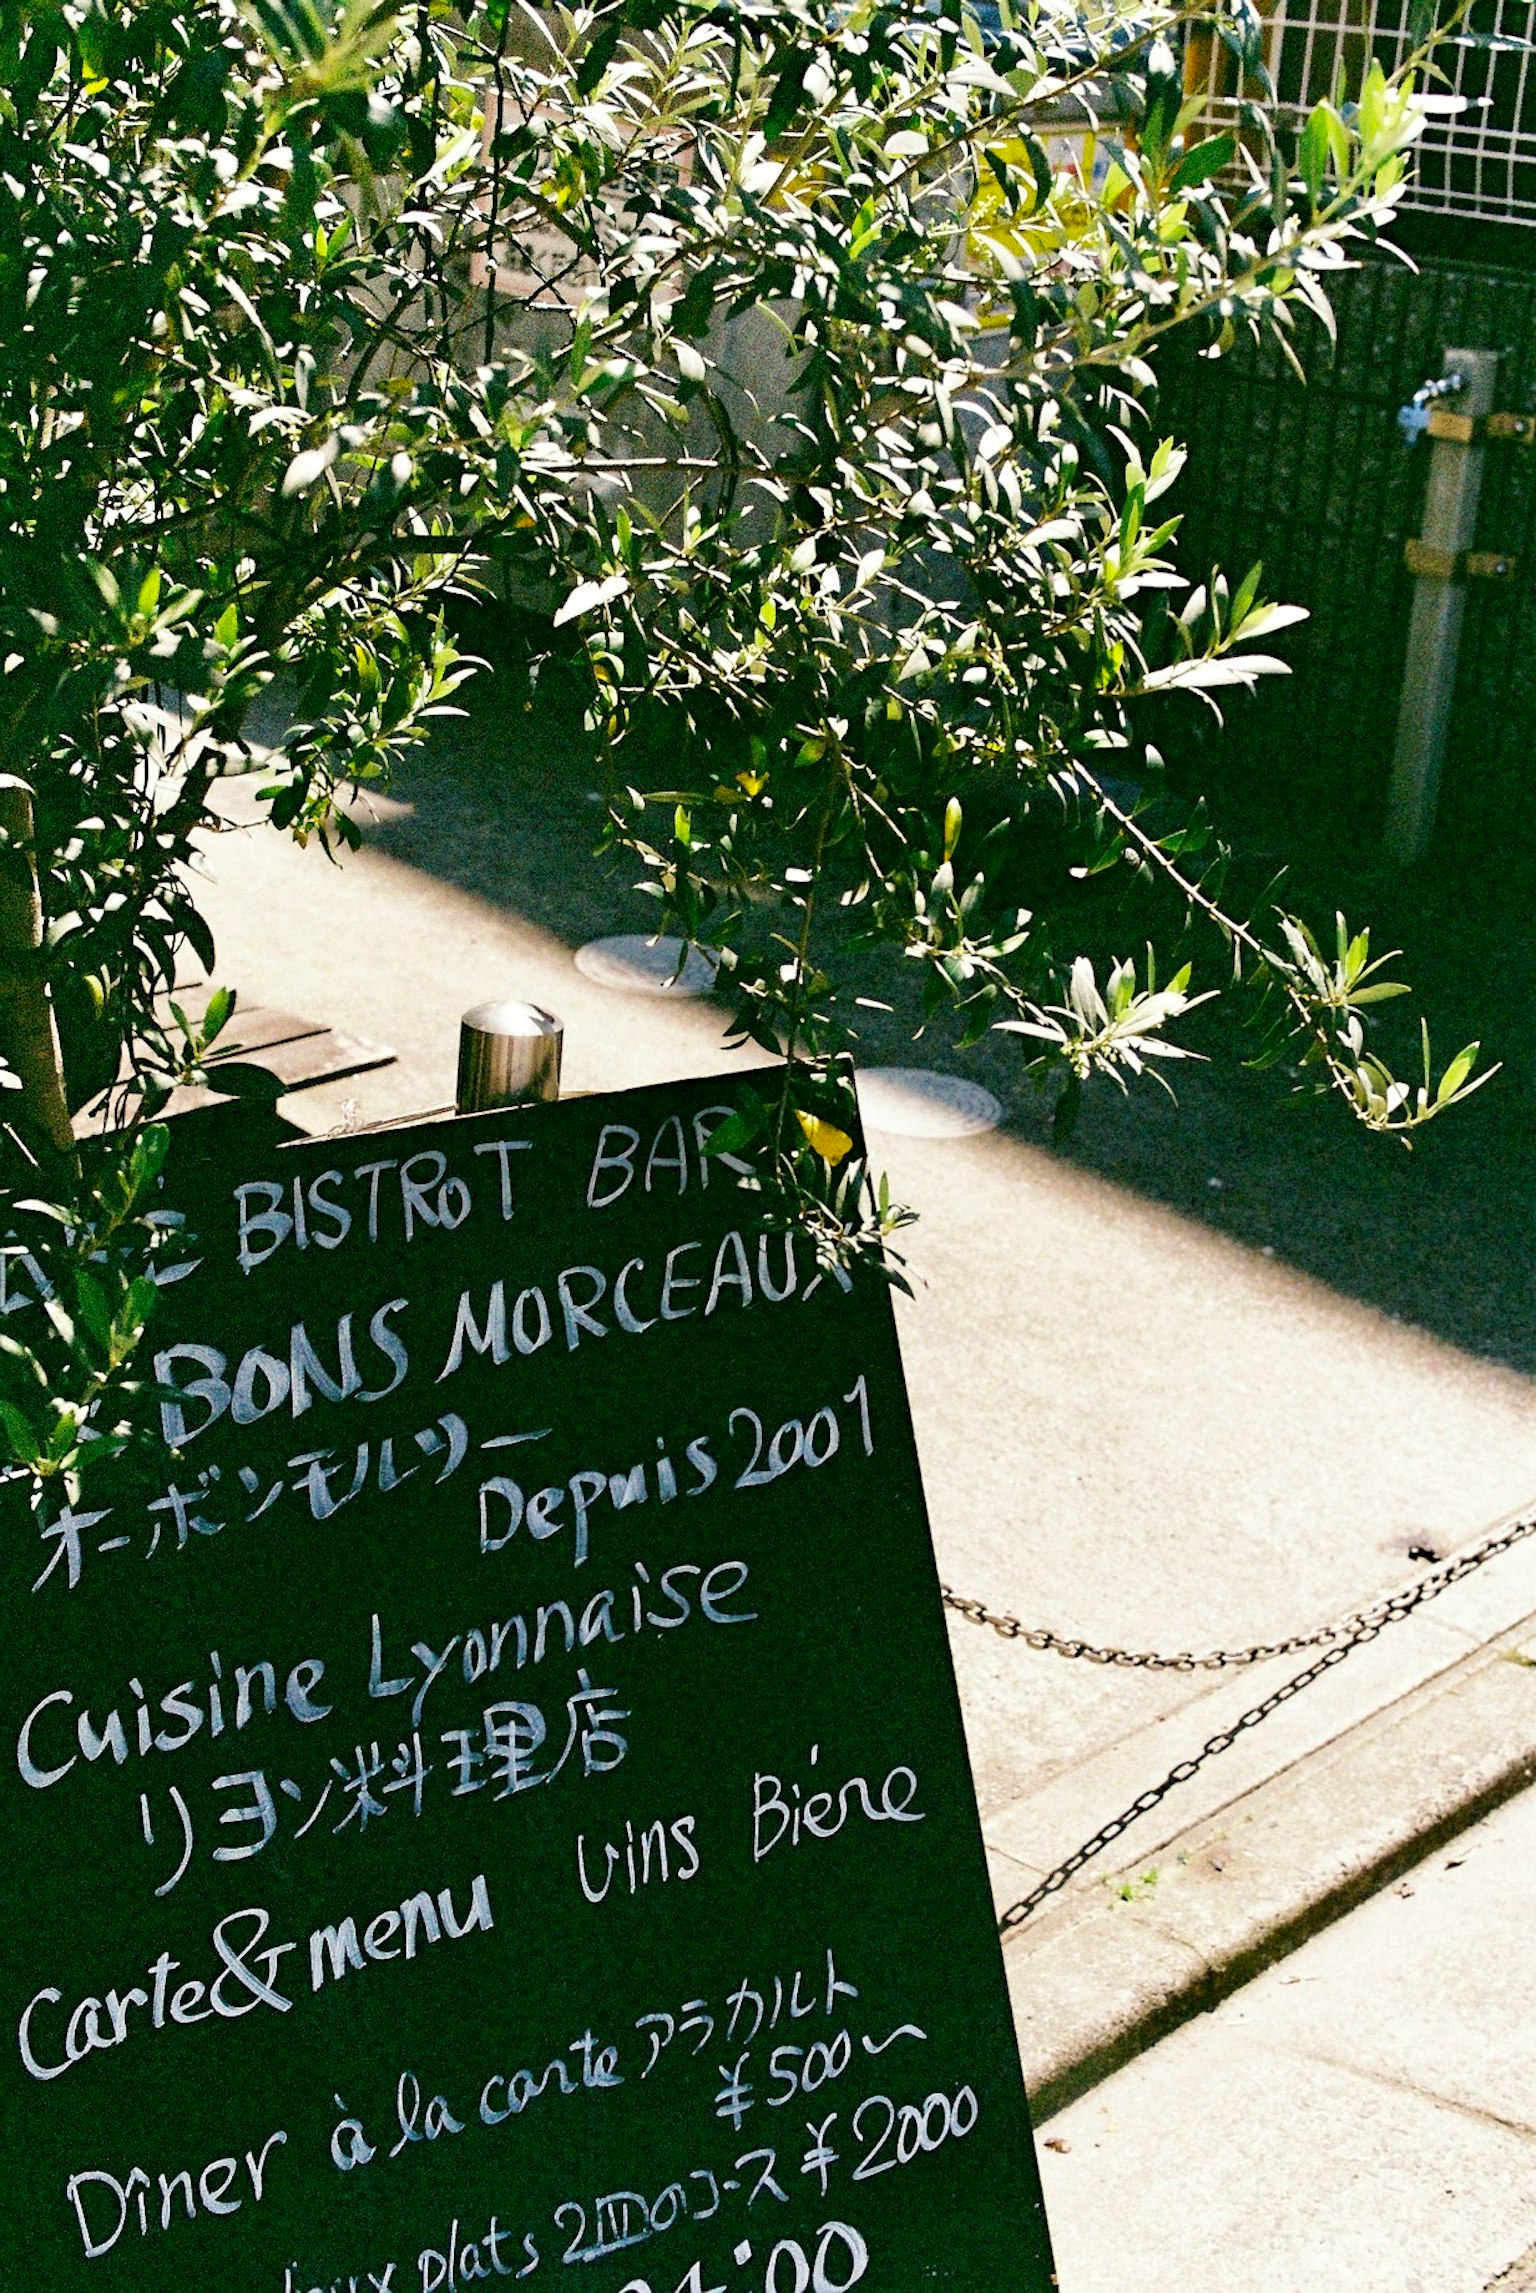 BISTROT BAR
BONS MORCEAUX
オーボンモルソー
Depuis 2001
Cuisine Lyonnaise
リヨン料理店
Carte & menu Vins Bière
Dîner à la carte アラカルト
¥500〜
plats 2皿のコース ¥2000
:00